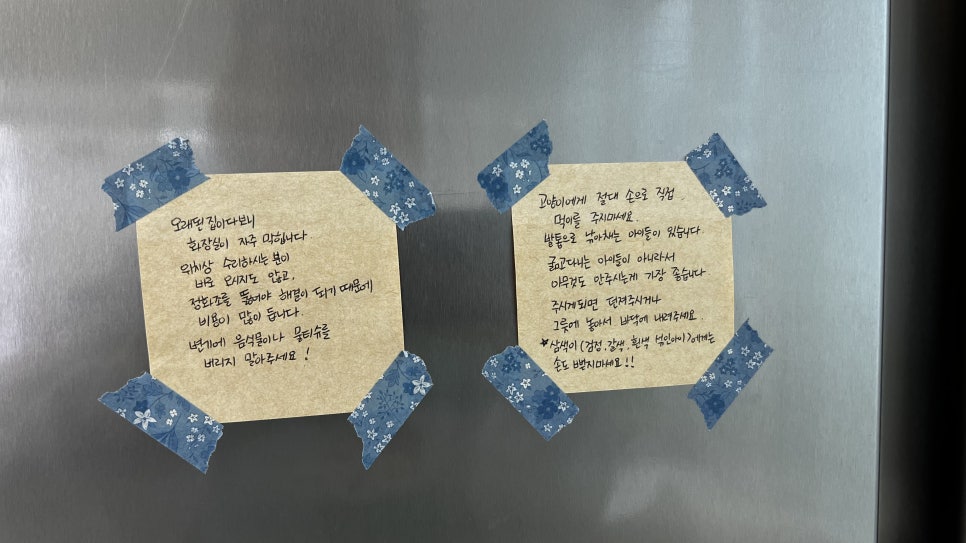 오래된 집이다보니
화장실이 자주 막힙니다.
위치상 수리하시는 분이
바로 오시지도 않고,
정화조를 뚫어야 해결이 되기 때문에
비용이 많이 듭니다.
변기에 음식물이나 물티슈를
버리지 말아주세요!
고양이에게 절대 손으로 직접
먹이를 주지마세요.
발톱으로 낚아채는 아이들이 있습니다.
굶고다니는 아이들이 아니라서
아무것도 안주시는게 가장 좋습니다
주시게되면 던져주시거나
그릇에 놓아서 바닥에 내려주세요.
★삼색이(검정, 갈색, 흰색 섞인아이)에게는
손도 뻗지마세요!!